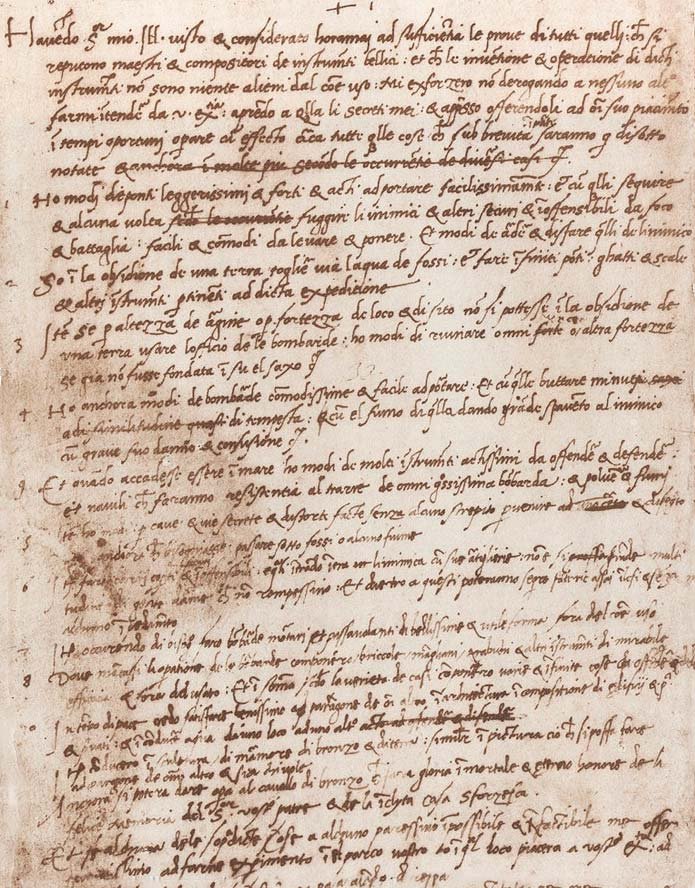 Havēdo Sor mio Ill. visto & considerato horamai ad sufficiētia le prove di tutti quelli ch̄ si
reputono maestri & compositori de instrumti bellici: et ch̄ le inventione & operatione di dicti
instrumti nō sono niente alieni dal cōe uso: Mi exforzero nō derogando a nessuno alt°
farmi ītendē da v. exia: aprēdo a qlla li secreti mei: & apsso offerendoli ad ōi suo piacimto
ī tempi oportuni opare cū effecto circa tutti qlle cose ch̄ sub brevita ī parte saranno q disotto
notate & anchora ī molte piu secōdo le occurrētie de diversi casi
1 Ho modi de ponti leggerissimi & forti & acti ad portare facilissimamte: et cū qlli seguire
& alcuna volta fuggiri li inimici & altri securi & īoffensibili da foco
& battaglia: facili & cōmodi da levare & ponere. Et modi de ardē & disfare qlli de linimico
2 So ī la obsidione de una terra toglie via laqua de fossi: et fare īfiniti pōti ghatti & scale
& altri īstrumti ptinēti ad dicta expeditione
3 Itē se p altezza de argine o p fortezza de loco & di sito nō si pottessi ī la obsidione de
una terra usare lofficio de le bombarde: ho modi di ruinare omni forte o altra fortezza
se gia nō fusse fondata ī su el saxo
4 Ho anchora modi de bombarde cōmodissime & facile ad portare: Et cū qlle buttare minuti
a di similitudine quasi di tempesta: & cū el fumo di qlla dando grāde spavēto al inimico
cū grave suo danno & confusione
9 Et quādo accadesse essere ī mare ho modi de molti īstrumti actissimi da offendē & defendē:
et navili ch̄ faranno resistentia al trarre de omni gssissima bōbarda: & polvē & fumi
5 Itē ho modi p cave & vie secrete & distorte facte senza alcuno strepito pvenire ad disegto
anchora ch̄ bisognasse passare sotto fossi o alcuno fiume
6 Itē faro carri coperti & īoffensibili: e quali ītrādo intra li inimica cū sue artiglierie: nō e si multi
tudine di gente darme ch̄ nō rompessino: Et dietro a questi poteranno seguire fanterie assai illesi & senza
alchuno īpedimto
7 Itē occurrendo di bisōo faro bōbarde mortari et passavolanti di bellissime & utile forme fora del cōe uso
8 Dove mācassi la opatione de le bōbarde componerro briccole mangani trabuchi & altri istrumti di mirabile
efficacia & fora del usato: Et ī somma scdo la varieta de casi cōponero varie & īfinite cose da offendē
10 In tēpo di pace credo satisfare benissimo ad paragone de ōi altro ī architectura ī compositione di edificii & pu
& privati: & ī cōducē aqua da uno loco ad uno alto
Itē conducero ī sculptura di marmore di bronzo & di terra: similē ī pictura cio ch̄ si possa fare
ad paragone de omi altro & sia chi vole
Anchora si potera dare opa al cavallo di bronzo ch̄ sara gloria īmortale & eterno honore de la
felice memoria del Sor vostro patre & de la īclyta casa Sforzesca
Et se alchune de le sopradicte cose a alchuno paressino īpossibile & īfactibile me offero
ad farne expimento ī el parco vostro o ī ql loco piacera a vostra exia: ad